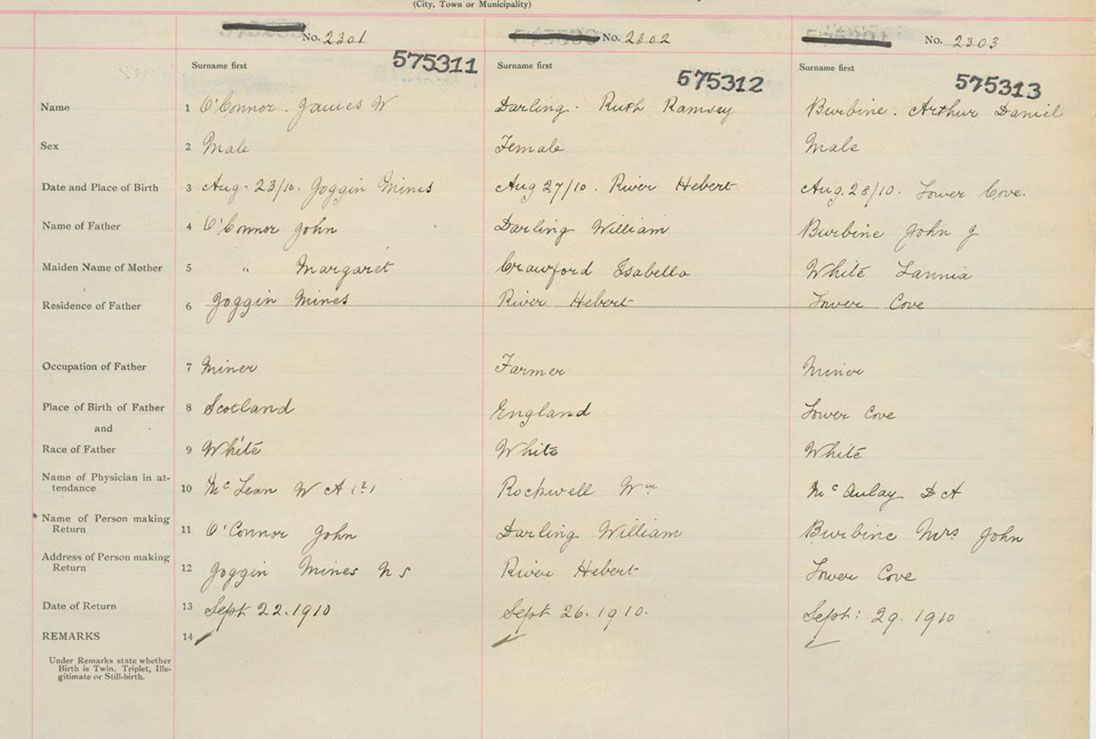 (City, Town or Municipality)
No. 2301 No. 2302 No. 2303
575311 575312 575313
Surname first Surname first Surname first
Name 1 O'Connor. James W Darling. Ruth Ramsey Burbine. Arthur Daniel
Sex 2 Male Female Male
Date and Place of Birth 3 Aug. 23/10. Joggin Mines Aug 27/10. River Hebert Aug. 28/10. Lower Cove.
Name of Father 4 O'Connor John Darling William Burbine John J
Maiden Name of Mother 5 " Margaret Crawford Isabella White
Residence of Father 6 Joggin Mines River Hebert Lower Cove
Occupation of Father 7 Miner Farmer Miner
Place of Birth of Father 8 Scotland England Lower Cove
and
Race of Father 9 White White White
Name of Physician in at-
tendance 10 McLean W A (?) Rockwell Wm McAulay D A
Name of Person making
Return 11 O'Connor John Darling William Burbine Mrs John
Address of Person making
Return 12 Joggin Mines N S River Hebert Lower Cove
Date of Return 13 Sept 22. 1910 Sept 26. 1910. Sept: 29. 1910
REMARKS 14
Under Remarks state whether
Birth is Twin, Triplet, Ille-
gitimate or Still-birth.